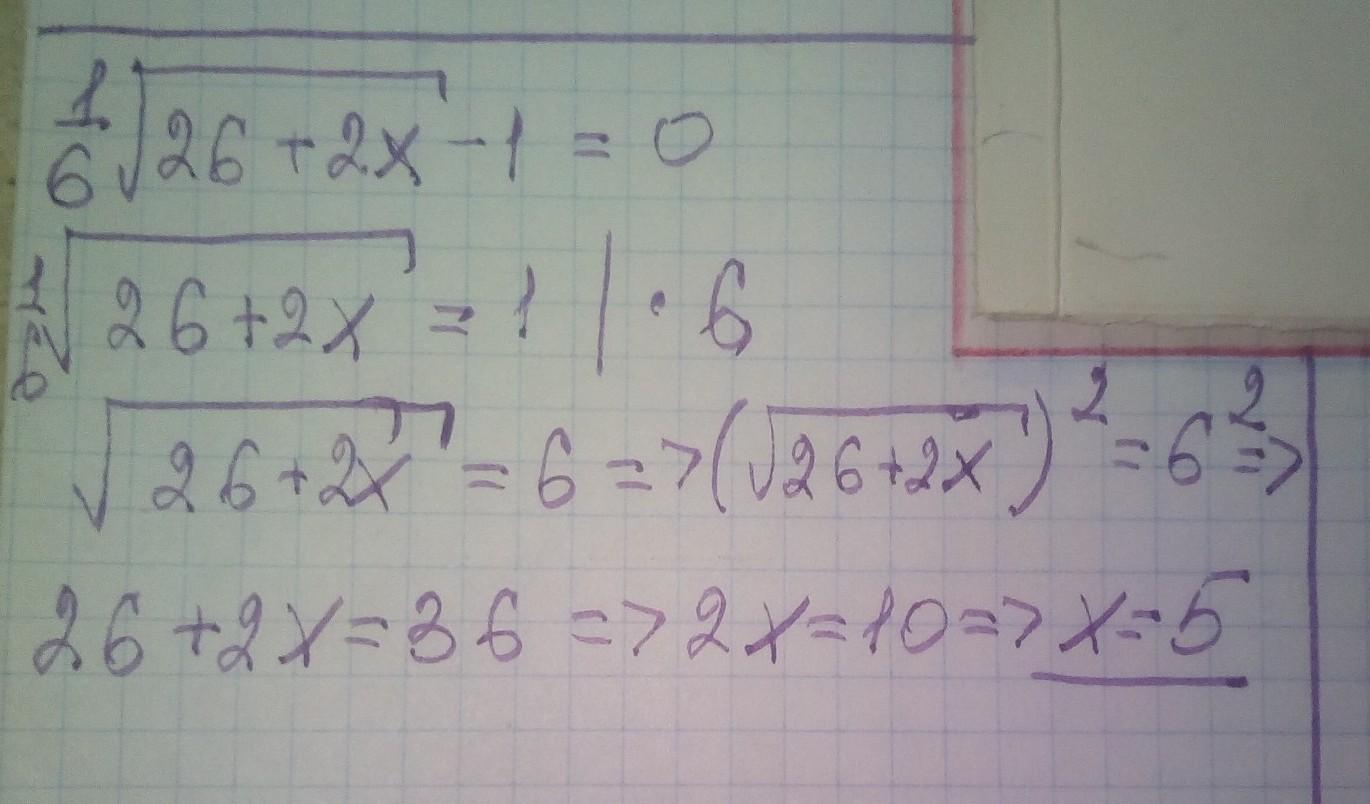 1/6 √(26 + 2x) - 1 = 0
1/6 √(26 + 2x) = 1 | · 6
√(26 + 2x) = 6 => (√(26 + 2x))² = 6² =>
26 + 2x = 36 => 2x = 10 => x = 5